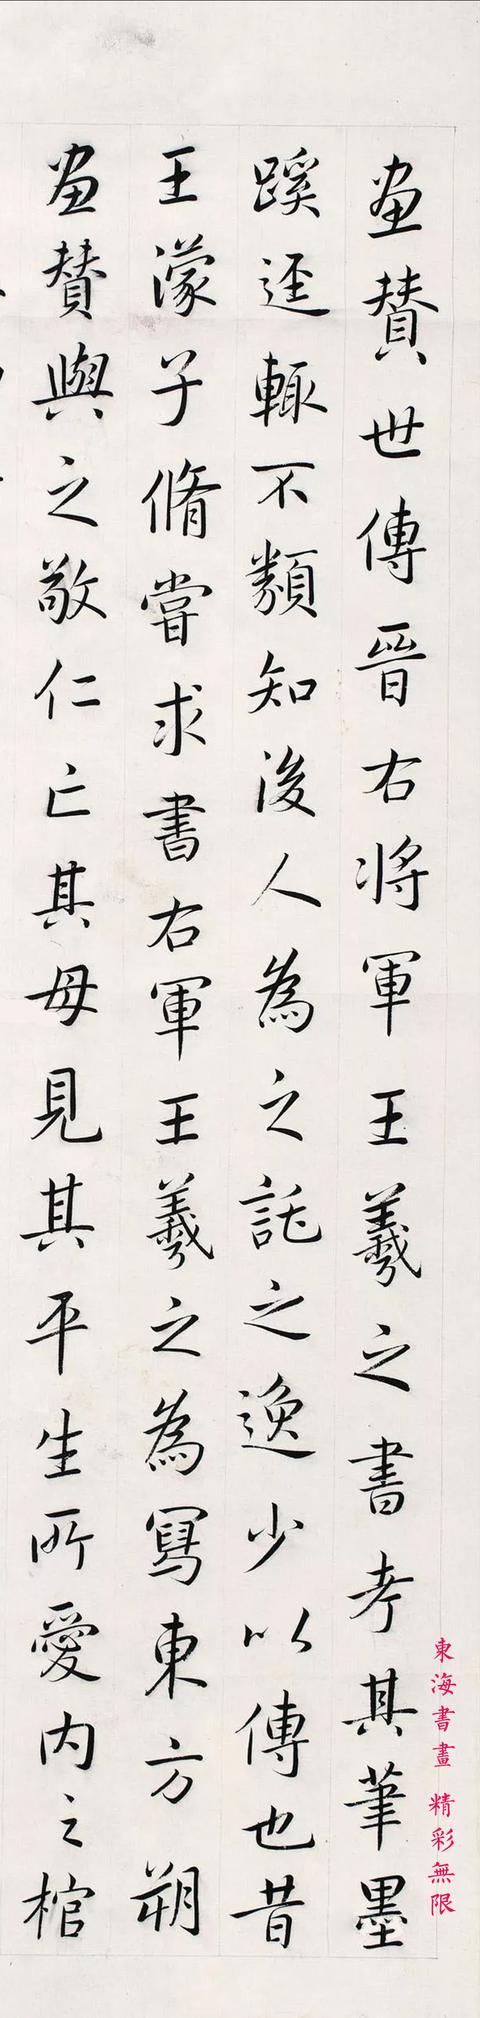 畫賛世傳晉右將軍王羲之書考其筆墨
蹊逕輙不類知後人為之託之逸少以傳也昔
王濛子脩嘗求書右軍王羲之為寫東方朔
畫賛與之敬仁亡其母見其平生所愛內之棺
東海書畫 精彩無限